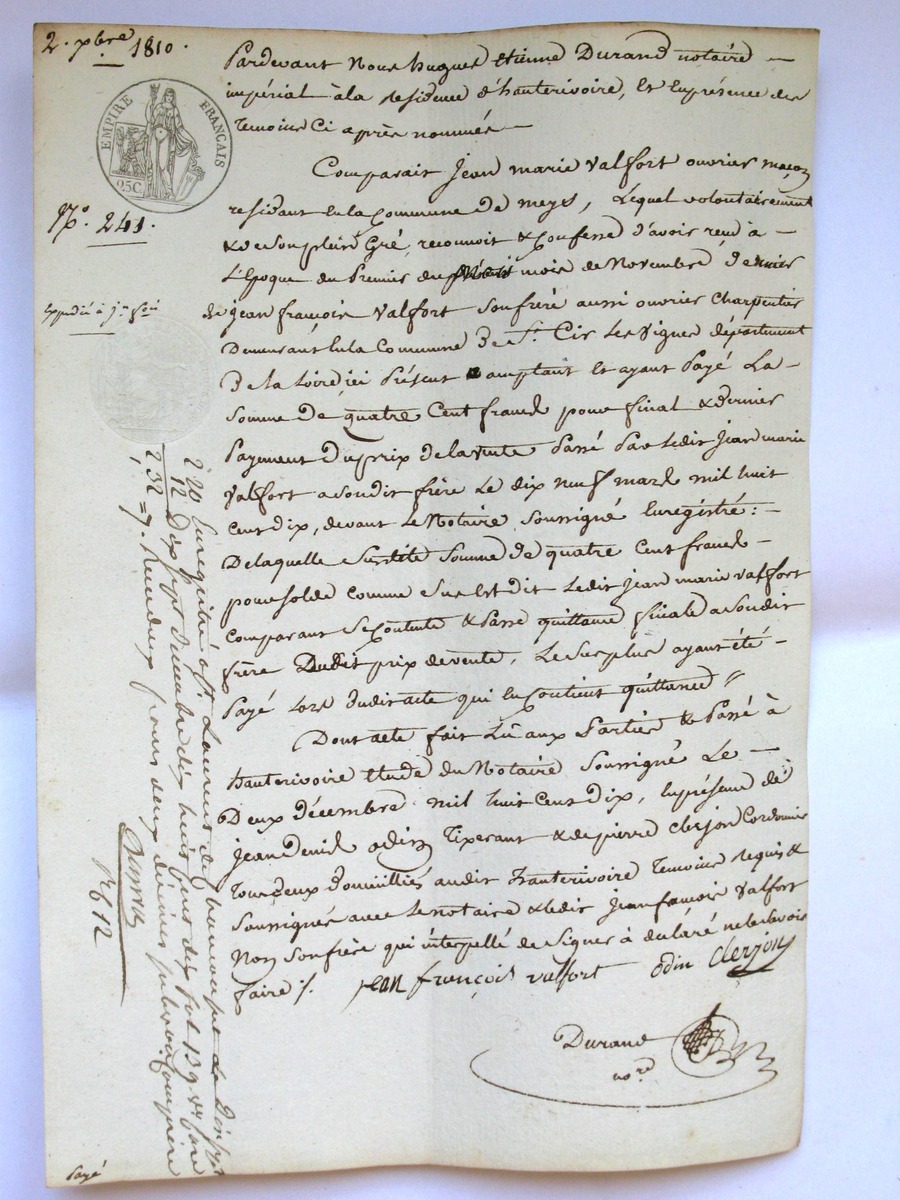 2. xbre 1810.
EMPIRE FRANÇAIS
25C
No. 241.
Expédié à jn. fçois
Pardevant Nous hugues Etienne Durand notaire
impérial à la residence d'hauterivoire, Et Enprésence des
temoins Ci après nommés
Comparait Jean marie Valfort ouvrier maçon
residant Enla Commune De meys, Lequel volontairement
& de Son plein Gré, reconnoit & Confesse d'avoir reçu à
L'Epoque du Premier du mois de Novembre dernier
de jean françois Valfort Son frère aussi ouvrier Charpentier
Demeurant Enla Commune De St. Cir Les Vignes département
De la Loire ici Présent Comptant Et ayant Payé La
Somme De quatre Cent francs pour final & dernier
Payement Du prix de la vente Passé Par Ledit Jean marie
Valfort a Son dit frère Le dix neuf mars mil huit
Cent dix, devant Le Notaire Soussigné Enregistré :
De laquelle Susdite Somme de quatre Cent francs
pour Solde Comme Sus Est dit Ledit jean marie Valfort
Comparant Se Contente & Passe quittance finale a Son dit
frère Dudit prix de vente, Le Surplus ayant été
Payé Lors dudit acte qui En Contient quittance
Dont acte fait Lu aux Parties & Passé à
hauterivoire Etude du Notaire Soussigné Le
Deux décembre mil huit Cent Dix, En présence de
jean Denis odin Tixerant & de pierre Clerjon Cordonnier
tous deux domiciliés audit hauterivoire temoins requis &
Soussignés avec Le notaire & Ledit jean françois Valfort
Non Son frère qui interpellé de Signer à déclaré ne le Savoir
faire /.
jean françois valfort odin Clerjon
Durand
nore
Enregistré à St. Laurent de Chamousset Le Dix sept
Dix sept Décembre dix huit cent dix fol 139
Reçu deux francs deux décimes Subvention Comprise
Payé